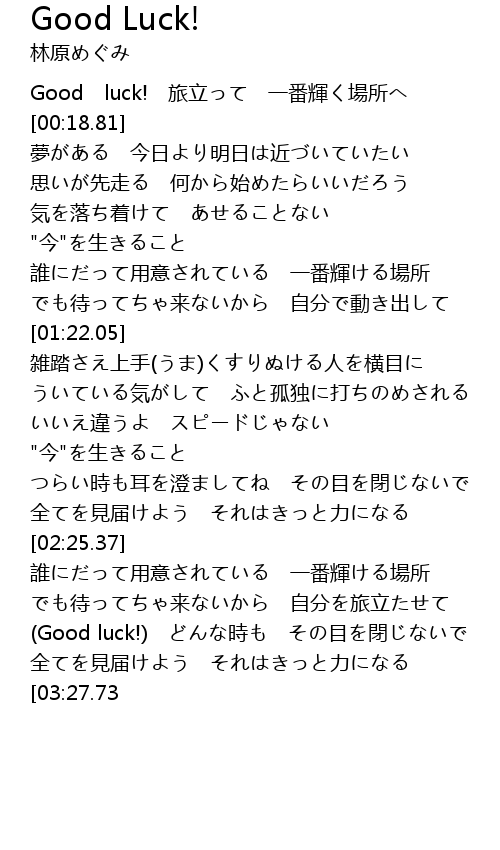 Good Luck!
林原めぐみ
Good　luck!　旅立って　一番輝く場所へ
[00:18.81]
夢がある　今日より明日は近づいていたい
思いが先走る　何から始めたらいいだろう
気を落ち着けて　あせることない
"今"を生きること
誰にだって用意されている　一番輝ける場所
でも待ってちゃ来ないから　自分で動き出して
[01:22.05]
雑踏さえ上手(うま)くすりぬける人を横目に
ういている気がして　ふと孤独に打ちのめされる
いいえ違うよ　スピードじゃない
"今"を生きること
つらい時も耳を澄ましてね　その目を閉じないで
全てを見届けよう　それはきっと力になる
[02:25.37]
誰にだって用意されている　一番輝ける場所
でも待ってちゃ来ないから　自分を旅立たせて
(Good luck!)　どんな時も　その目を閉じないで
全てを見届けよう　それはきっと力になる
[03:27.73